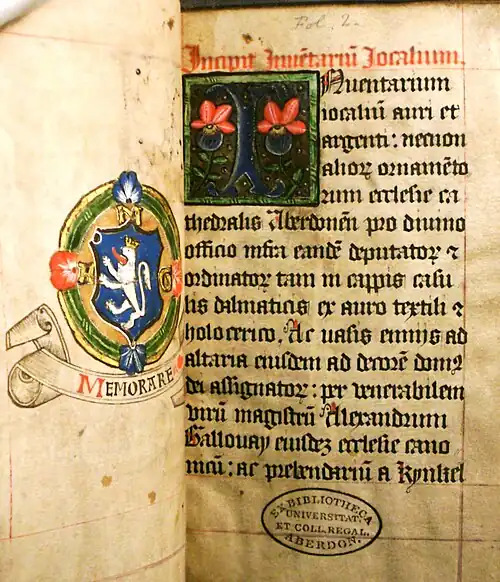 Fol. 2.
Incipit Inuētariū Iocalium.
INuentarium
iocaliū auri et
argenti: necnon
alioꝝ ornamēto
rum ecclesie ca
thedralis Aberdonēn pro diuino
officio infra eandē deputatoꝝ ⁊
ordinatoꝝ tam in cappis casu
lis dalmaticis ex auro textili ⁊
holocerico. Ac vasis eneijs ad
altaria eiusdem ad decorē domꝰ
dei assignatoꝝ: per venerabilem
virū magistrū Alexandrum
Gallouay eiusdez ecclesie cano
nicū: ac prebendariū a Kynkel
MEMORARE
EX BIBLIOTHECA
UNIVERSITAT.
ET COLL. REGAL.
ABERDON.